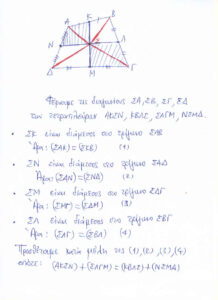 K
B
A
N
Λ
Δ
M
Γ
Φέρουμε τις διαγωνίους ΣΑ, ΣΒ, ΣΓ, ΣΔ
των τετραπλεύρων ΑΚΣΝ, ΚΒΛΣ, ΣΛΓΜ, ΝΣΜΔ
• ΣΚ είναι διάμεσος στο τρίγωνο ΣΑΒ
Άρα: (ΣΑΚ) = (ΣΚΒ) (1)
• ΣΝ είναι διάμεσος στο τρίγωνο ΣΑΔ
Άρα: (ΣΑΝ) = (ΣΝΔ) (2)
• ΣΜ είναι διάμεσος στο τρίγωνο ΣΔΓ
Άρα: (ΣΜΓ) = (ΣΔΜ) (3)
• ΣΛ είναι διάμεσος στο τρίγωνο ΣΒΓ
Άρα: (ΣΛΓ) = (ΣΒΛ) (4)
Προσθέτουμε κατά μέλη τις (1), (2), (3), (4)
οπότε: (ΑΚΣΝ) + (ΣΛΓΜ) = (ΚΒΛΣ) + (ΝΣΜΔ)